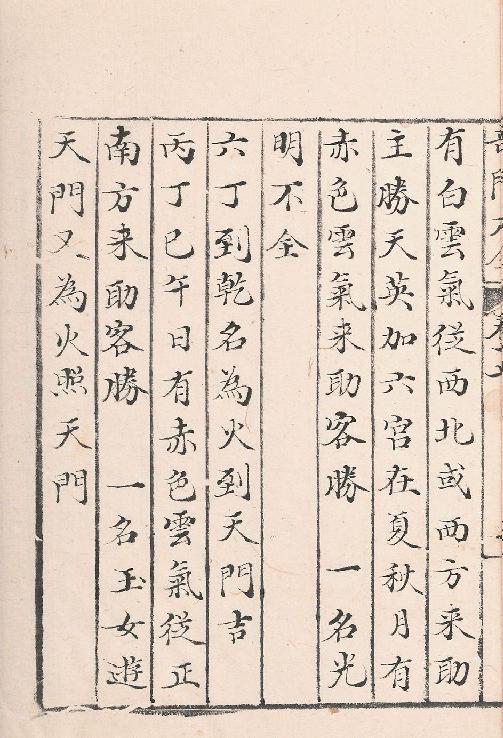 有白雲氣從西北或西方来助
主勝天英加六宫在夏秋月有
赤色雲氣来助客勝　一名光
明不全
六丁到乾名為火到天門吉
丙丁巳午日有赤色雲氣從正
南方来助客勝　一名玉女遊
天門又為火照天門